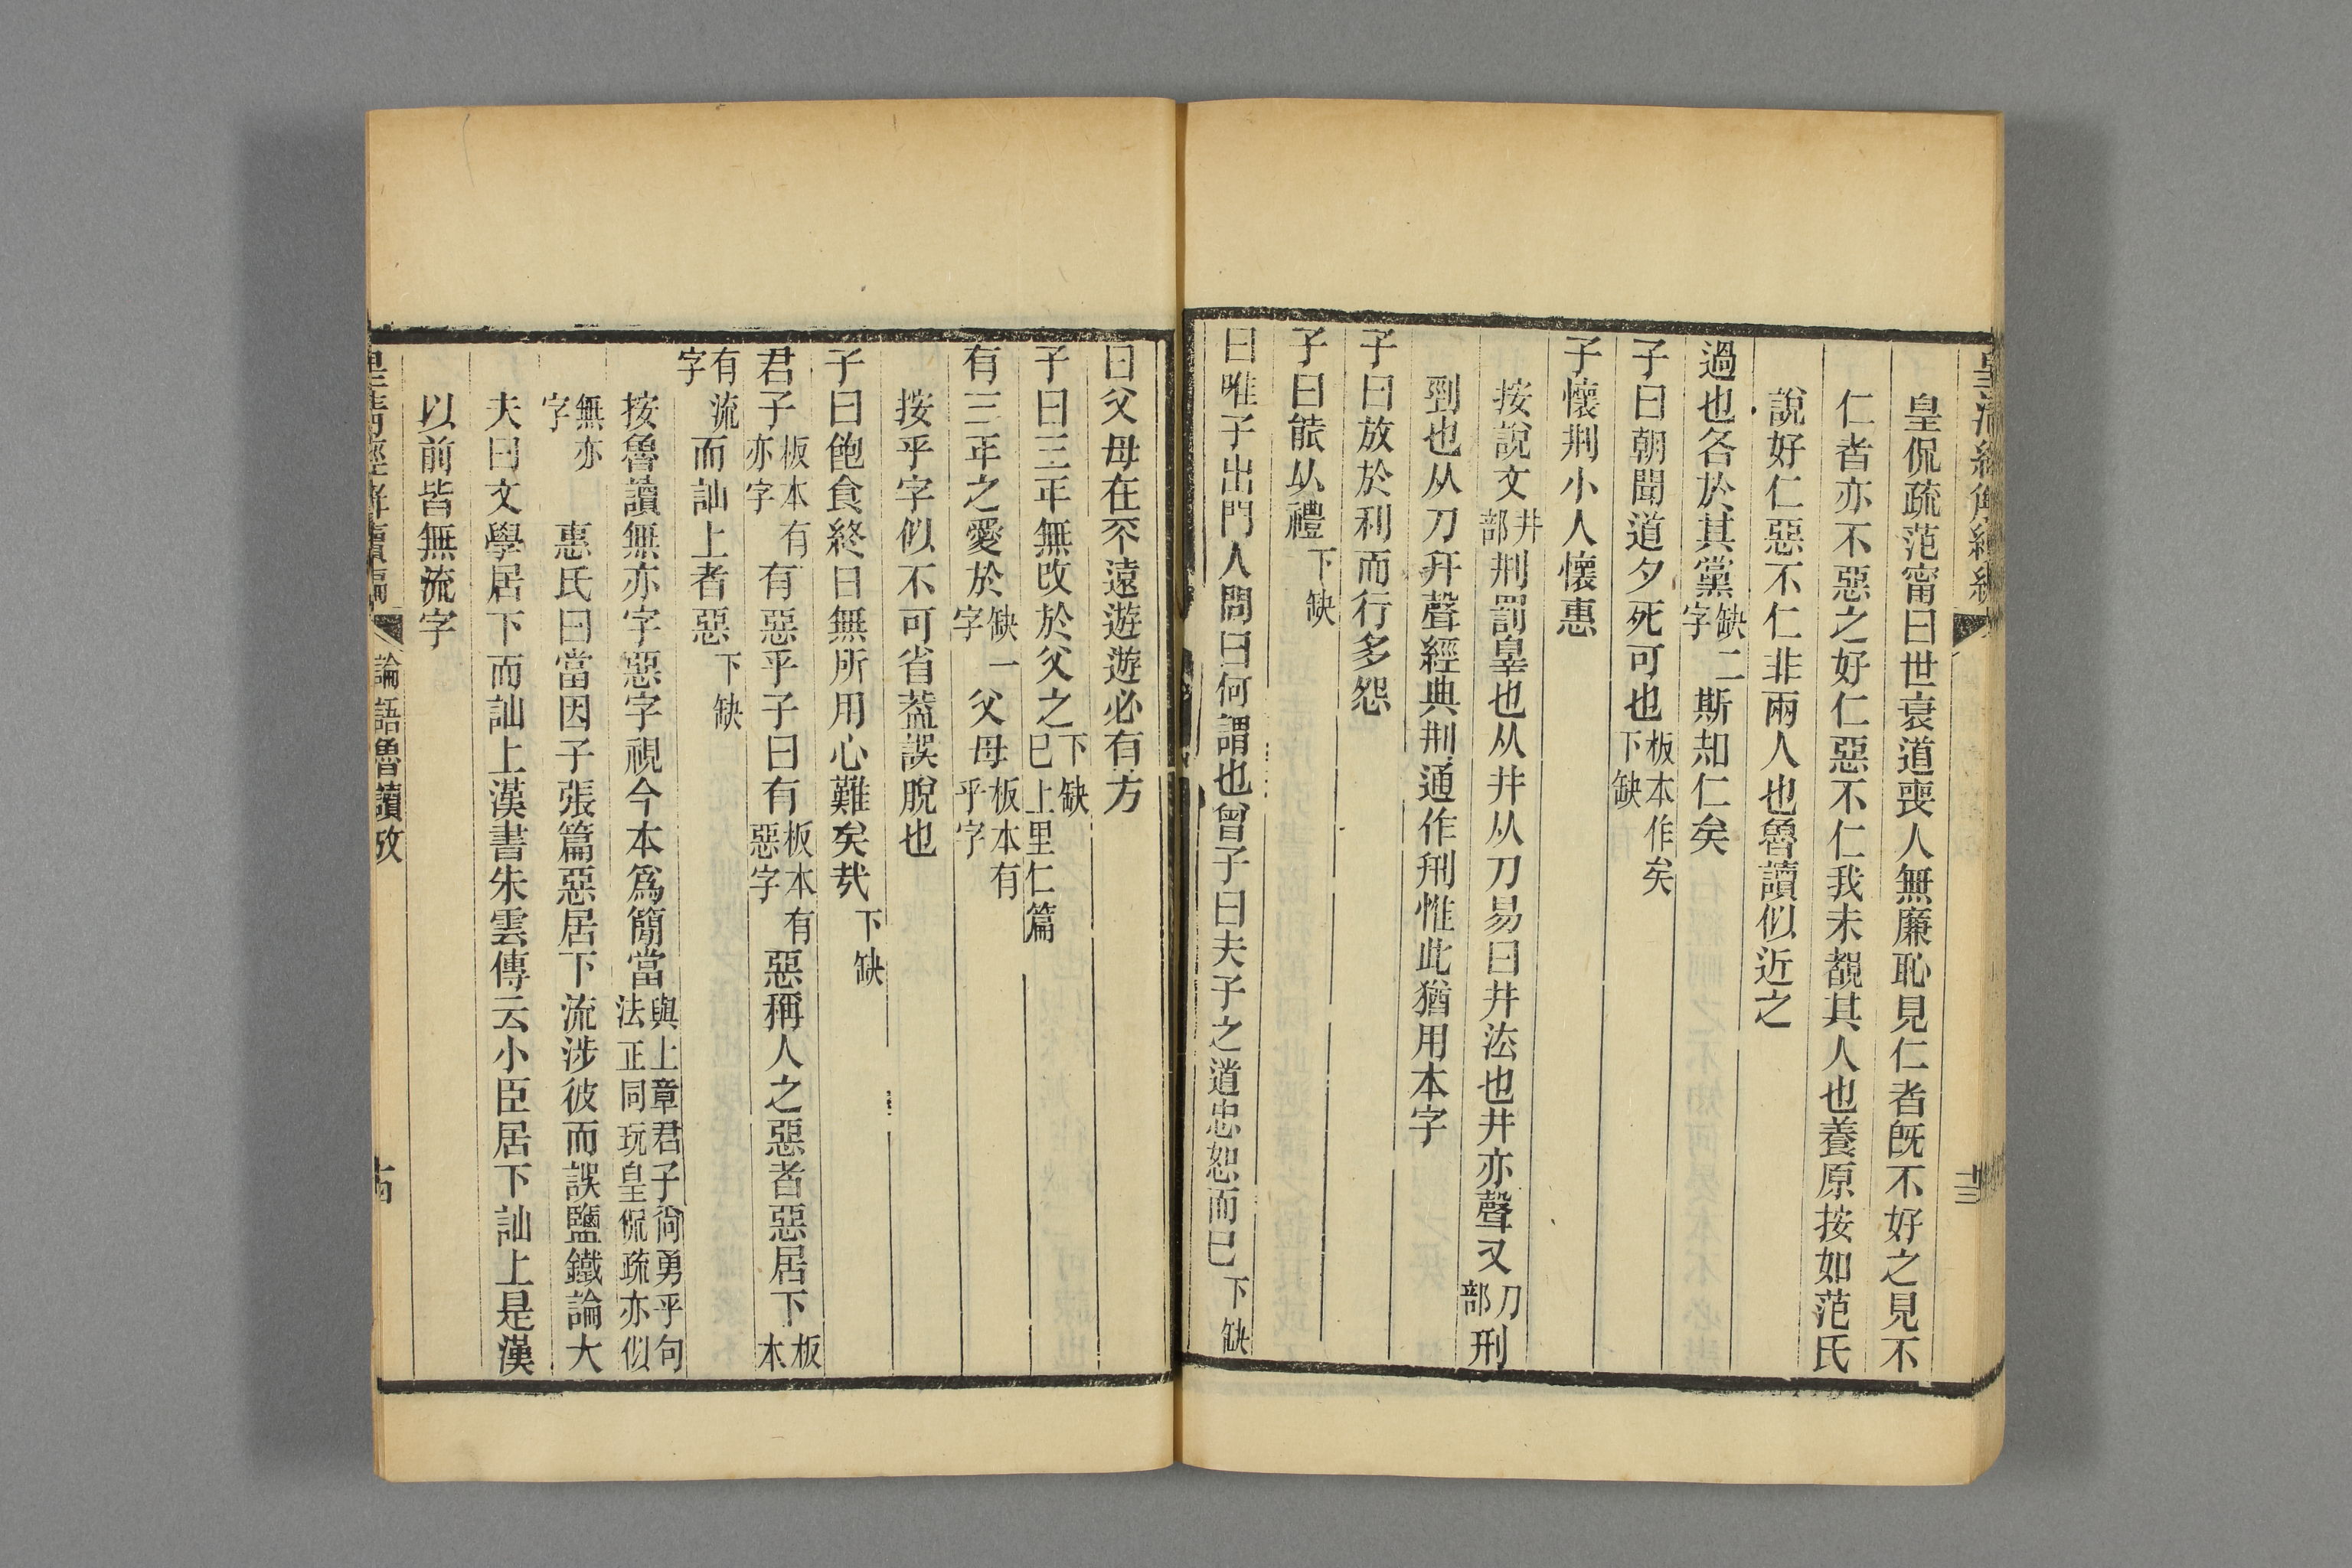 皇侃疏范甯曰世衰道喪人無廉恥見仁者既不好之見不
仁者亦不惡之好仁惡不仁我未覩其人也養原按如范氏
說好仁惡不仁非兩人也魯讀似近之
過也各於其黨缺二字斯知仁矣
子曰朝聞道夕死可也板本作矣下缺
子懷㓝小人懷惠
按說文井部㓝罰辠也从井从刀易曰井法也井亦聲又刀部刑
剄也从刀幵聲經典㓝通作刑惟此猶用本字
子曰放於利而行多怨
子曰能以禮下缺
曰唯子出門人問曰何謂也曾子曰夫子之道忠恕而已下缺
曰父母在不遠遊遊必有方
子曰三年無改於父之下缺已上里仁篇
有三年之愛於缺一字父母板本有乎字
按乎字似不可省葢誤脫也
子曰飽食終日無所用心難矣哉下缺
君子板本有亦字有惡乎子曰有板本有惡字惡稱人之惡者惡居下板本
有流字而訕上者惡下缺
按魯讀無亦字惡字視今本爲簡當與上章君子尙勇乎句法正同玩皇侃疏亦似
無亦字惠氏曰當因子張篇惡居下流涉彼而誤鹽鐵論大
夫曰文學居下而訕上漢書朱雲傳云小臣居下訕上是漢
以前皆無流字
論語魯讀攷
十四